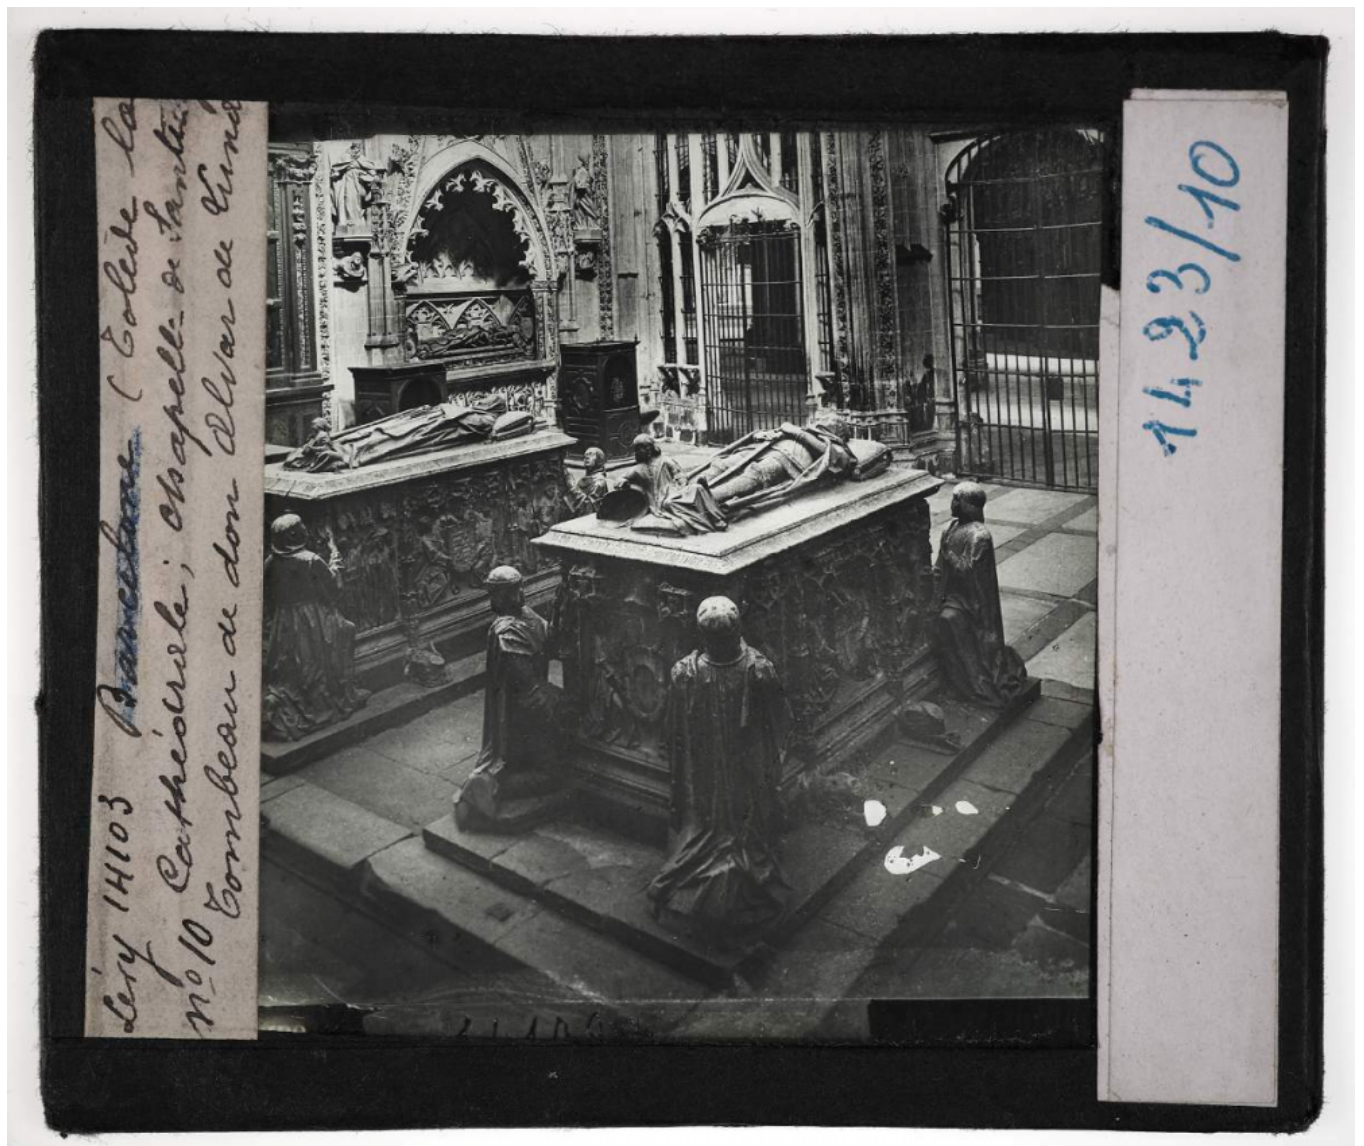 Léry 14103 Barcelone ( Tolède la
nº 10 Cathédrale ; chapelle de Santia
Tombeau de don Alvar de Luna
1423/10